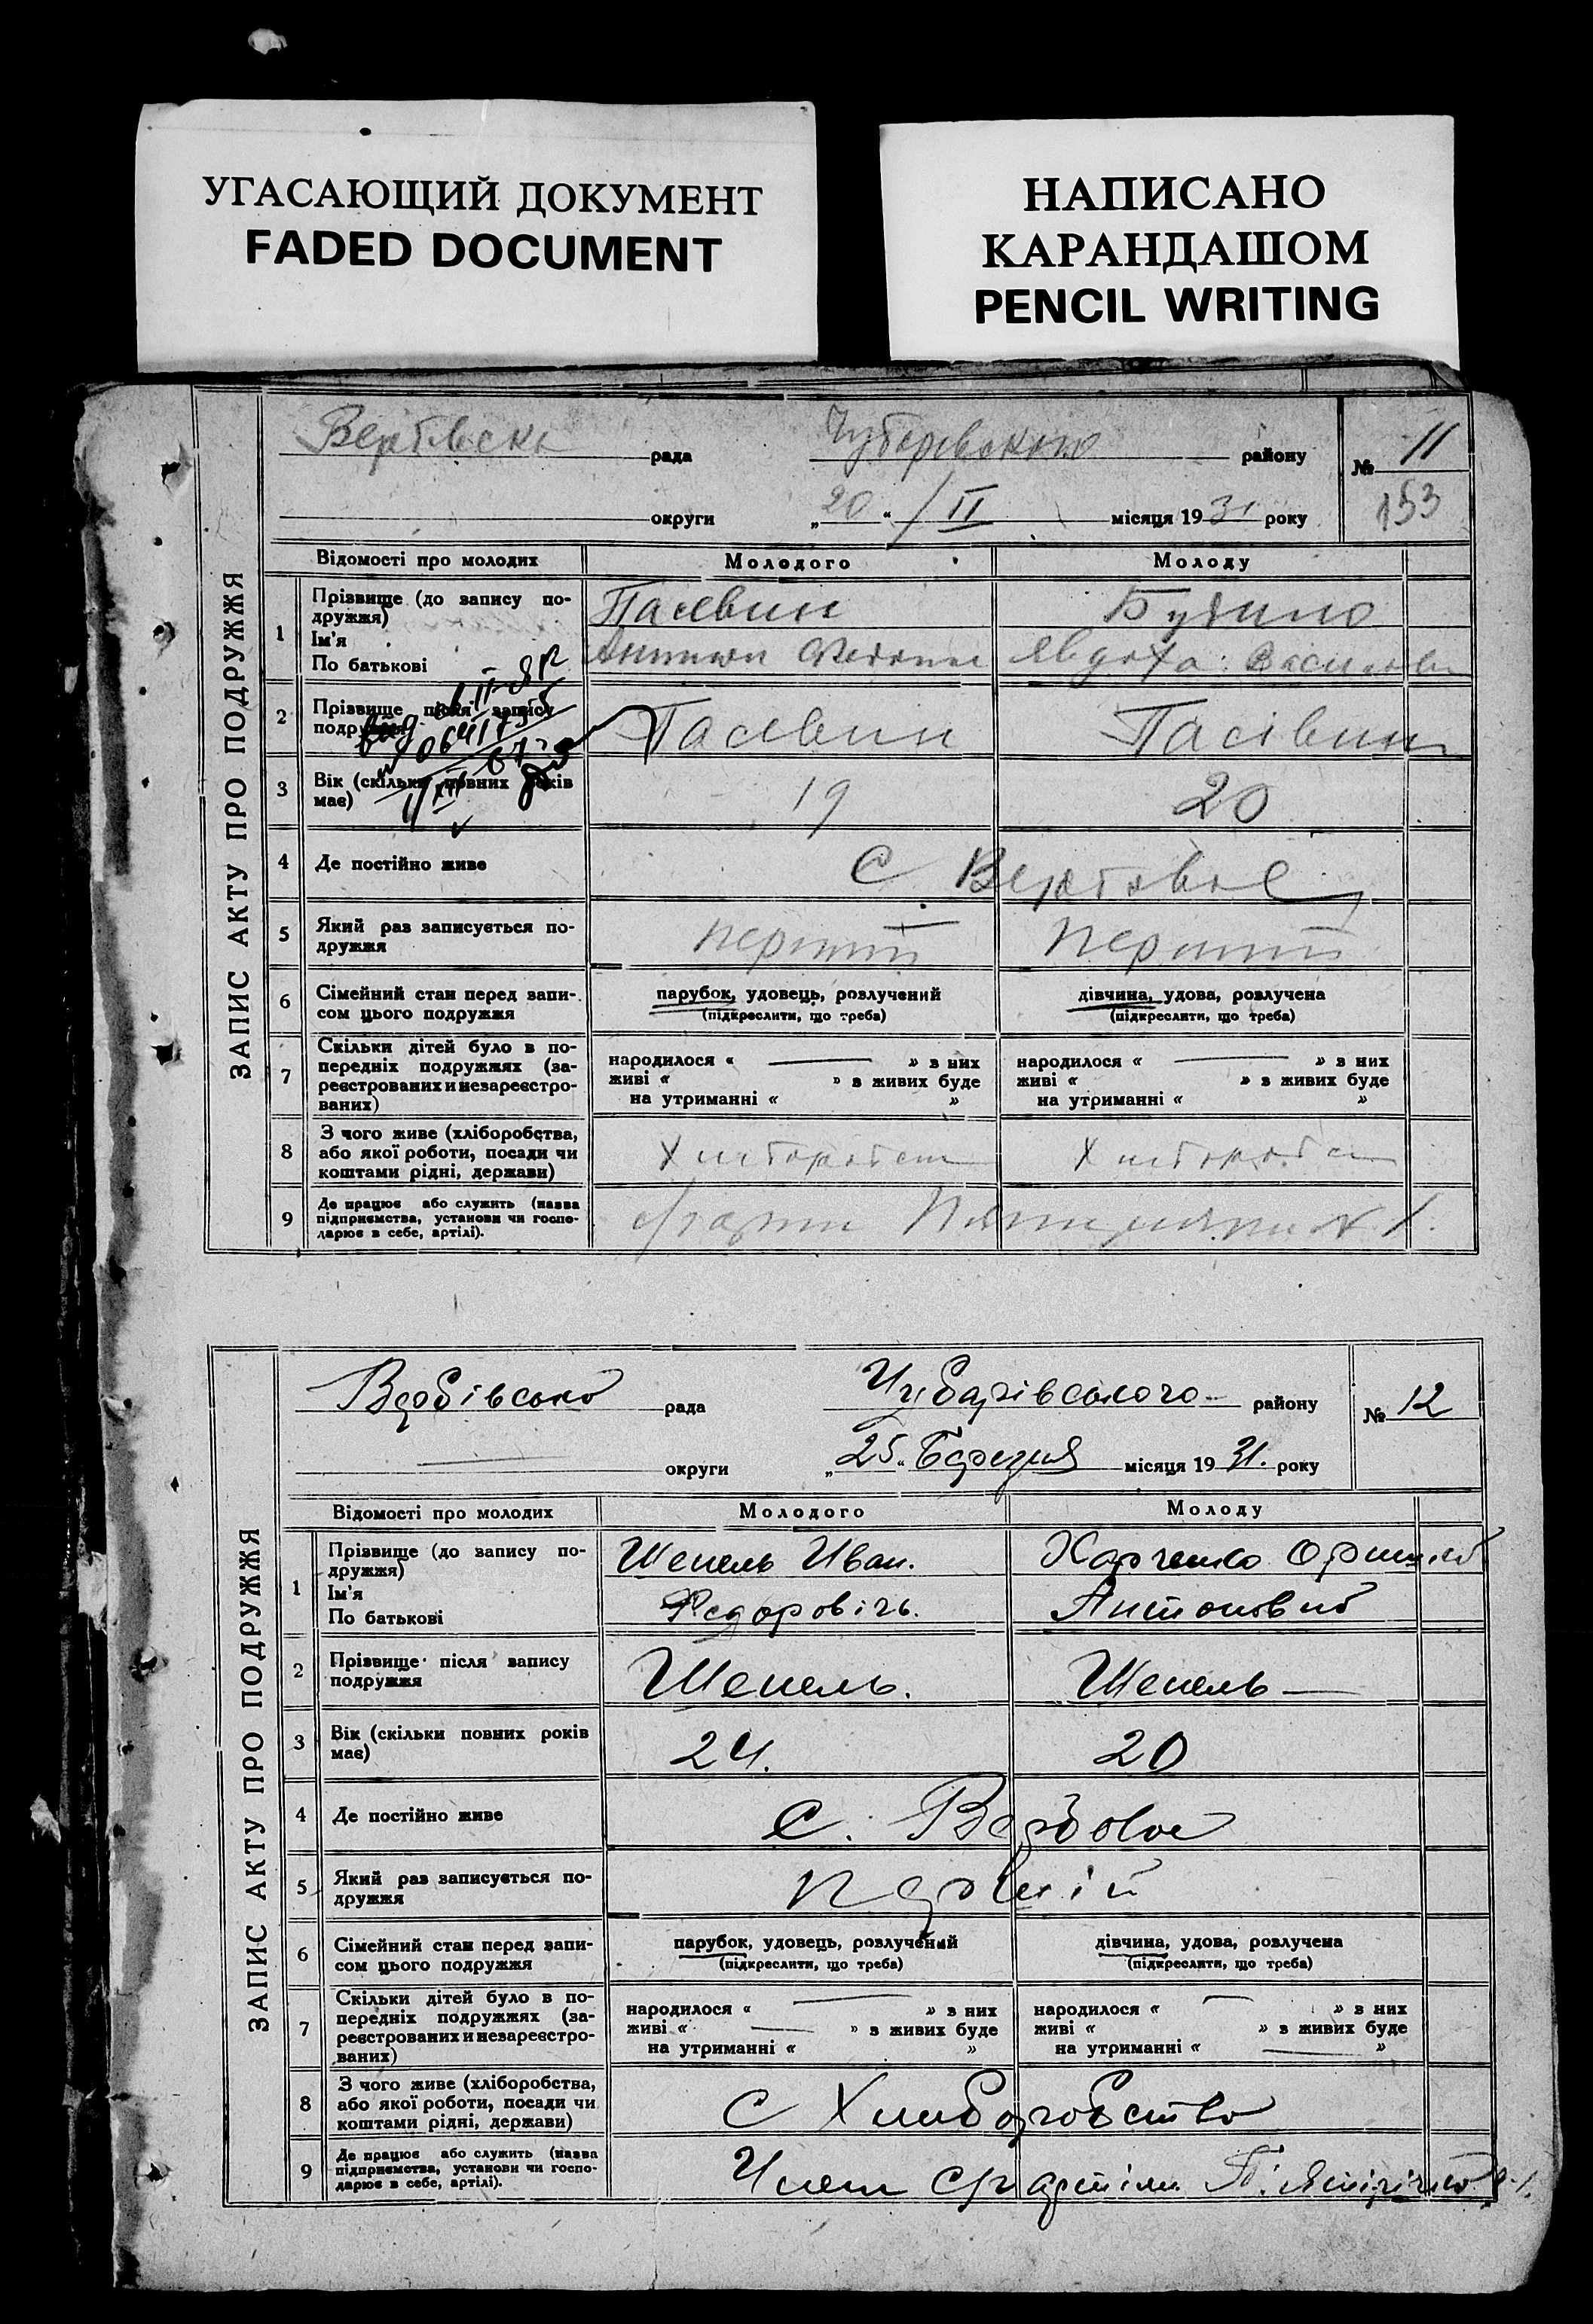 УГАСАЮЩИЙ ДОКУМЕНТ
FADED DOCUMENT
НАПИСАНО
КАРАНДАШОМ
PENCIL WRITING
ЗАПИС АКТУ ПРО ПОДРУЖЖЯ
рада Чубарівського району № 11
округи „20“ / II місяця 1931 року 153
Відомості про молодих Молодого Молоду
1 Прізвище (до запису по-
дружжя)
Ім'я
По батькові
Явдоха
2 Прізвище після запису
подружжя
3 Вік (скільки повних років
має) 19 20
4 Де постійно живе С
5 Який раз записується по-
дружжя перший перший
6 Сімейний стан перед запи-
сом цього подружжя
парубок, удовець, розлучений дівчина, удова, розлучена
(підкреслити, що треба) (підкреслити, що треба)
7 Скільки дітей було в по-
передніх подружжях (за-
реєстрованих и незареєстро-
ваних)
народилося « — » з них народилося « — » з них
живі « » в живих буде живі « » в живих буде
на утриманні « » на утриманні « »
8 З чого живе (хліборобства,
або якої роботи, посади чи
коштами рідні, держави)
9 Де працює або служить (назва
підприємства, установи чи госпо-
дарює в себе, артілі).
ЗАПИС АКТУ ПРО ПОДРУЖЖЯ
Вербівсько рада Чубарівського району № 12
округи „25“ Березня місяця 1931. року
Відомості про молодих Молодого Молоду
1 Прізвище (до запису по-
дружжя)
Ім'я
По батькові
Шепель Иван. Харченко
Федоровічь. Антоновна
2 Прізвище після запису
подружжя Шепель. Шепель —
3 Вік (скільки повних років
має) 24. 20
4 Де постійно живе С. Вербовое
5 Який раз записується по-
дружжя першій
6 Сімейний стан перед запи-
сом цього подружжя
парубок, удовець, розлучений дівчина, удова, розлучена
(підкреслити, що треба) (підкреслити, що треба)
7 Скільки дітей було в по-
передніх подружжях (за-
реєстрованих и незареєстро-
ваних)
народилося « — » з них народилося « — » з них
живі « — » в живих буде живі « » в живих буде
на утриманні « » на утриманні « — »
8 З чого живе (хліборобства,
або якої роботи, посади чи
коштами рідні, держави) С Хлиборобство
9 Де працює або служить (назва
підприємства, установи чи госпо-
дарює в себе, артілі). Член